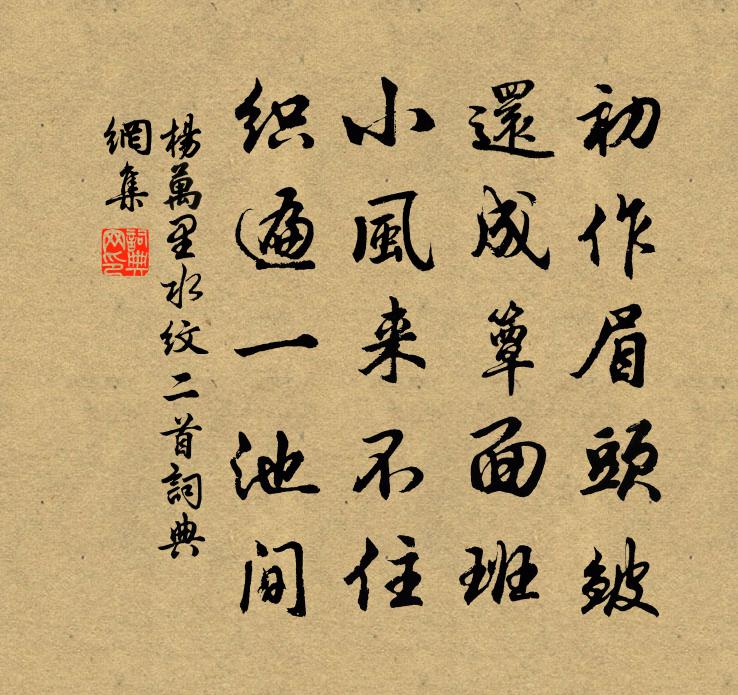 初作眉頭皴
還成簟面班
小風来不住
织遍一池间
楊萬里水纹二首詞典
網集
詞典网印